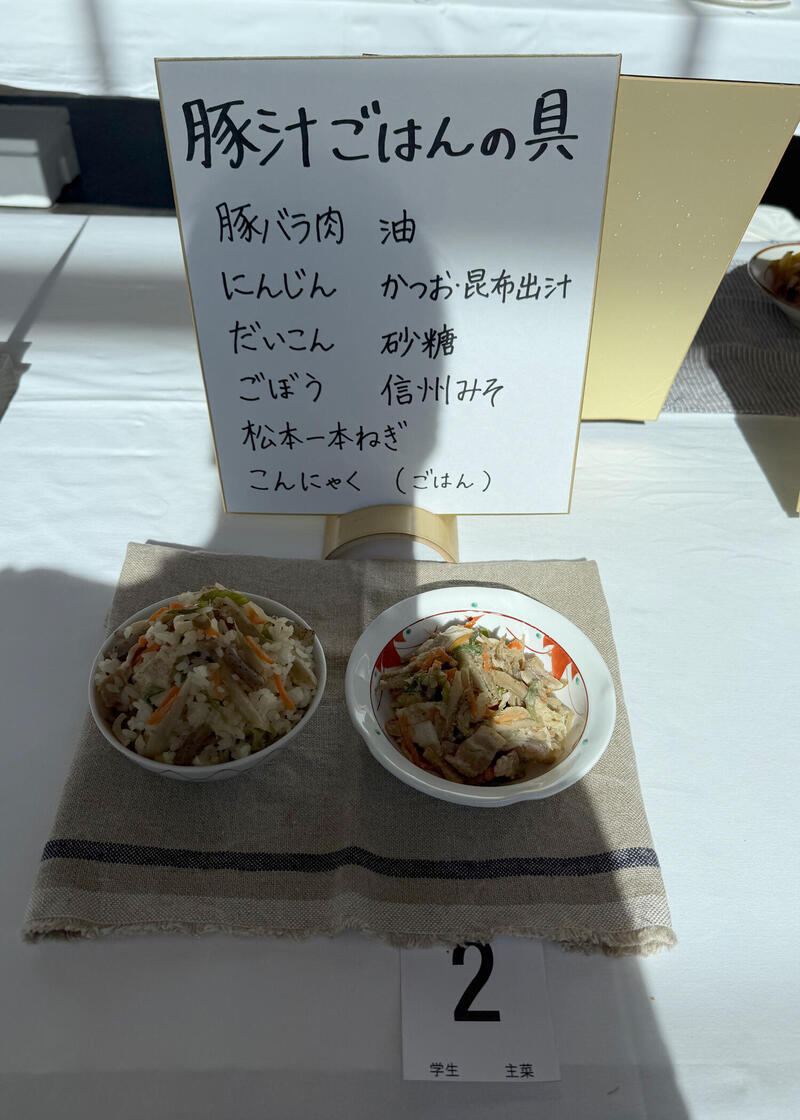 豚汁ごはんの具
豚バラ肉 油
にんじん かつお・昆布出汁
だいこん 砂糖
ごぼう 信州みそ
松本一本ねぎ
こんにゃく (ごはん)
2
学生 主菜